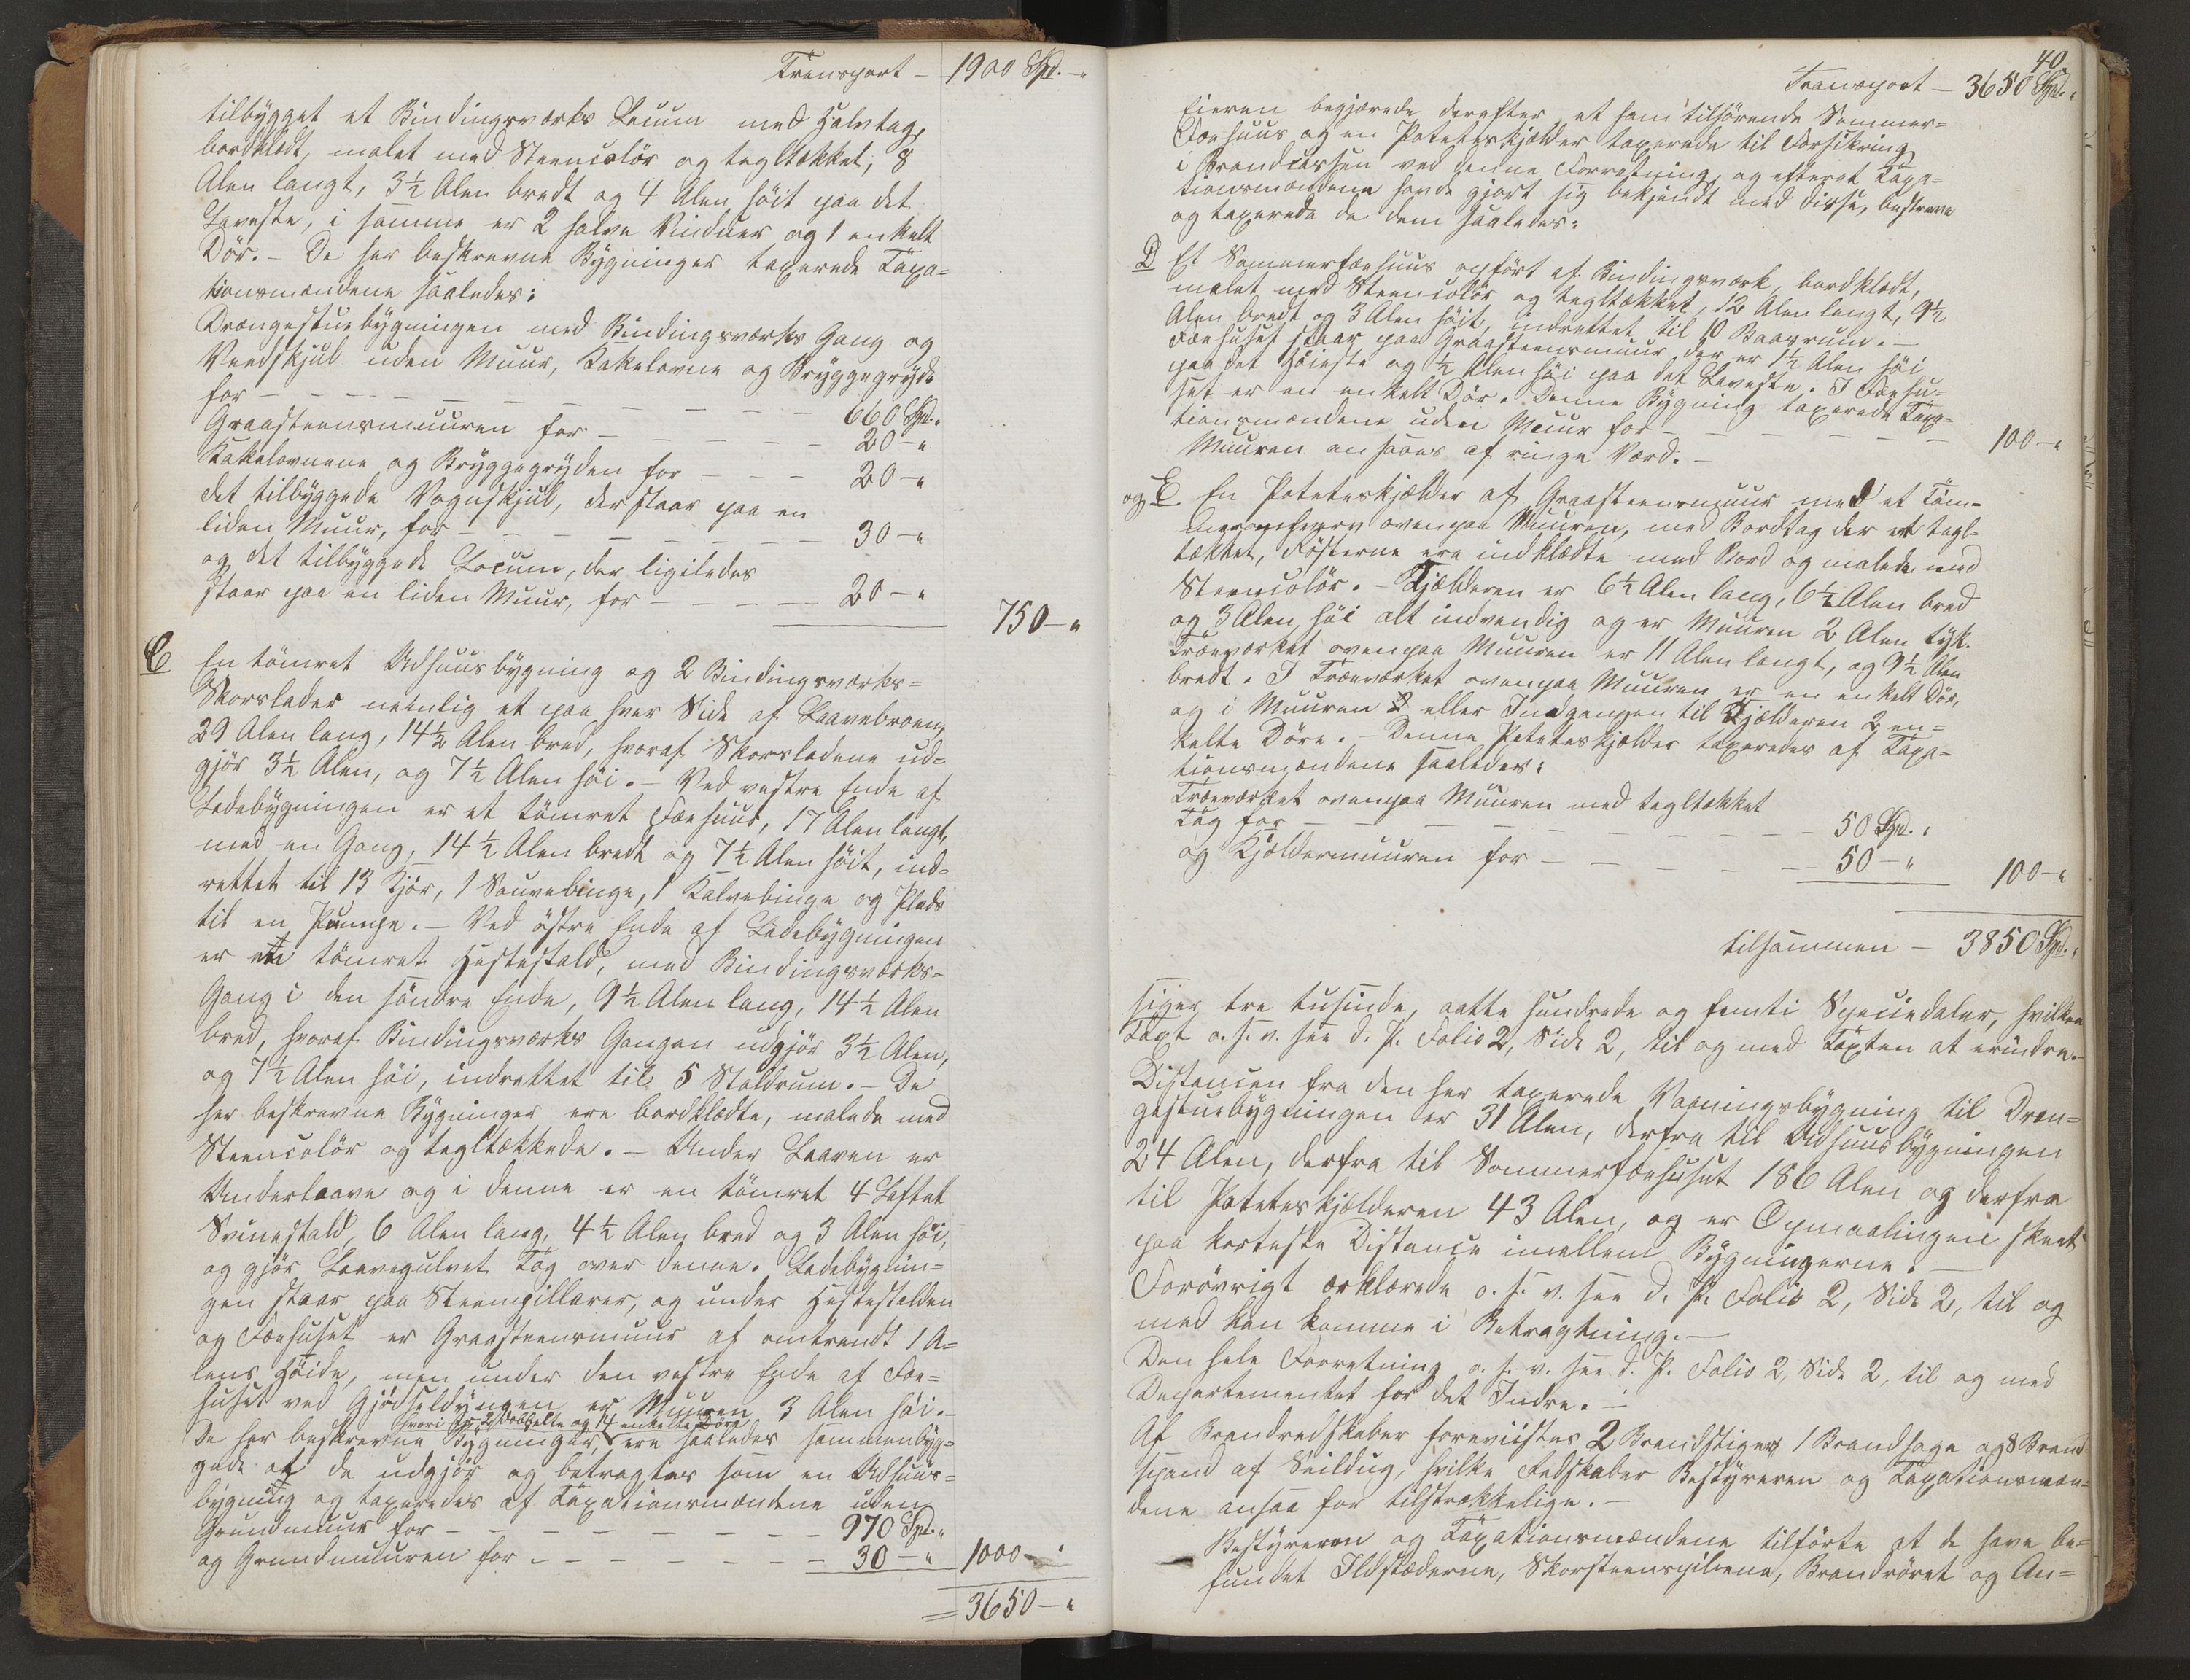 Transport – 1900 Spd. – "
tilbygget et Bindingsværks Locum med Halvtag,
bordklædt, malet med Steencolör og tegltækket, 8
Alen langt, 3½ Alen bredt og 4 Alen höit paa det
Laveste, i samme er 2 halve Vinduer og 1 enkelt
Dör. – De her beskrevne Bygninger taxerede Taxa-
tionsmændene saaledes:
Drængestuebygningen med Bindingsværks Gang og
Vedskjul uden Muur, Kakelovne og Bryggegryde
for – – – – – – – – 660 Spd. "
Graasteensmuuren for – – – – – 20 – "
Kakelovnene og Bryggegryden for – – – 20 – "
det tilbyggede Vognskjul, der staar paa en
liden Muur, for – – – – – – – 30 – "
og det tilbyggede Locum, der ligeledes
staar paa en liden Muur, for – – – – 20 – "
750 – "
C En tömret Udhuusbygning og 2 Bindingsværks-
Skorslader nemlig et paa hver Side af Laavebroen,
29 Alen lang, 14½ Alen bred, hvoraf Skorsladene ud-
gjör 3½ Alen, og 7½ Alen höi. – Ved vestre Ende af
Ladebygningen er et tömret Fæehuus, 17 Alen langt,
med en Gang, 14½ Alen bredt og 7½ Alen höit, ind-
rettet til 13 Kjör, 1 Sauebinge, 1 Kalvebinge og Plads
til en Pumpe. – Ved östre Ende af Ladebygningen
er et tömret Hestestald, med Bindingsværks-
Gang i den söndre Ende, 9½ Alen lang, 14½ Alen
bred, hvoraf Bindingsværks Gangen udgjör 3½ Alen,
og 7½ Alen höi, indrettet til 5 Staldrum. – De
her beskrevne Bygninger ere bordklædte, malede med
Steencolör og tegltækkede. – Under Laaven er
Underlaave og i denne er en tömret 4 Laftet
Svinestald, 6 Alen lang, 4½ Alen bred og 3 Alen höi,
og gjör Laavegulvet Tag over denne. Ladebygnin-
gen staar paa Steenpillarer, og under Hestestalden
og Fæehuset er Graasteensmuur af omtrendt 1 A-
lens Höide, men under den vestre Ende af Fæe-
huset ved Gjödseldyngen er Muuren 3 Alen höi. –
hvori er 2 dobbelte og 14 enkelte Döre
De her beskrevne Bygninger, ere saaledes sammenbyg-
gede at de udgjör og betragtes som en Udhuus-
bygning og taxeredes af Taxationsmændene uden
Grundmuur for – – – – – – – 970 Spd. "
og Grundmuuren for – – – – – – 30 – " 1000 – "
= 3650 – "
40.
Transport – 3650 Spd. "
Eieren begjærede derefter et ham tilhörende Sommer-
Fæehuus og en Poteteskjælder taxerede til Forsikring
i Brandcassen ved denne Forretning, og efterat Taxa-
tionsmændene havde gjort sig bekjendt med disse, beskreve
og taxerede de dem saaledes:
D Et Sommerfæehuus opfört af Bindingsværk, bordklædt,
malet med Steencolör og tegltækket, 12 Alen langt, 9½
Alen bredt og 3 Alen höit, indrettet til 10 Baasrum. –
Fæehuset staar paa Graasteensmuur der er 1½ Alen höi
paa det Höieste og ½ Alen höi paa det Laveste. I Fæehu-
set er en enkelt Dör. Denne Bygning taxerede Taxa-
tionsmændene uden Muur for – – – – – – – 100 – "
Muuren ansaaes af ringe Værd. –
og E En Poteteskjælder af Graasteensmuur med et Töm-
ovenpaa Muuren, med Bordtag der er tegl-
tækket, Røsterne ere indklædte med Bord og malede med
Steencolör. – Kjælderen er 6½ Alen lang, 6½ Alen bred
og 3 Alen höi alt indvendig og er Muuren 2 Alen tyk.
Træeværket ovenpaa Muuren er 11 Alen langt, og 9½ Alen
bredt. I Træeværket ovenpaa Muuren er en enkelt Dör,
og i Muuren eller Indgangen til Kjælderen 2 en-
kelte Döre. – Denne Poteteskjælder taxeredes af Taxa-
tionsmændene saaledes:
Træeværket ovenpaa Muuren med tegltækket
Tag for – – – – – – – 50 Spd. "
og Kjældermuuren for – – – – – 50 – " 100 – "
tilsammen – 3850 Spd. "
siger tre tusinde, aatte hundrede og femti Speciedaler, hvilken
Taxt o. s. v. see d. P. Folio 2, Side 2, til og med Taxten at erindre.
Distancen fra den her taxerede Vaaningsbygning til Dræn-
gestuebygningen er 31 Alen, derfra til Udhuusbygningen
24 Alen, derfra til Sommerfæehuset 186 Alen og derfra
til Poteteskjælderen 43 Alen, og er Opmaalingen skeet
paa korteste Distance imellem Bygningerne. –
Forövrigt erklærede o. s. v. see d. P. Folio 2, Side 2, til og
med kan komme i Betragtning. –
Den hele Forretning o. s. v. see d. P. Folio 2, Side 2, til og med
Departementet for det Indre. –
Af Brandredskaber foreviistes 2 Brandstiger, 1 Brandhage og 8 Brand-
spand af Seildug, hvilke Redskaber Bestyreren og Taxationsmæn-
dene ansaa for tilstrækkelige. –
Bestyreren og Taxationsmændene tilförte at de have be-
fundet Ildstæderne, Skorsteenspiberne, Brandröret og An-